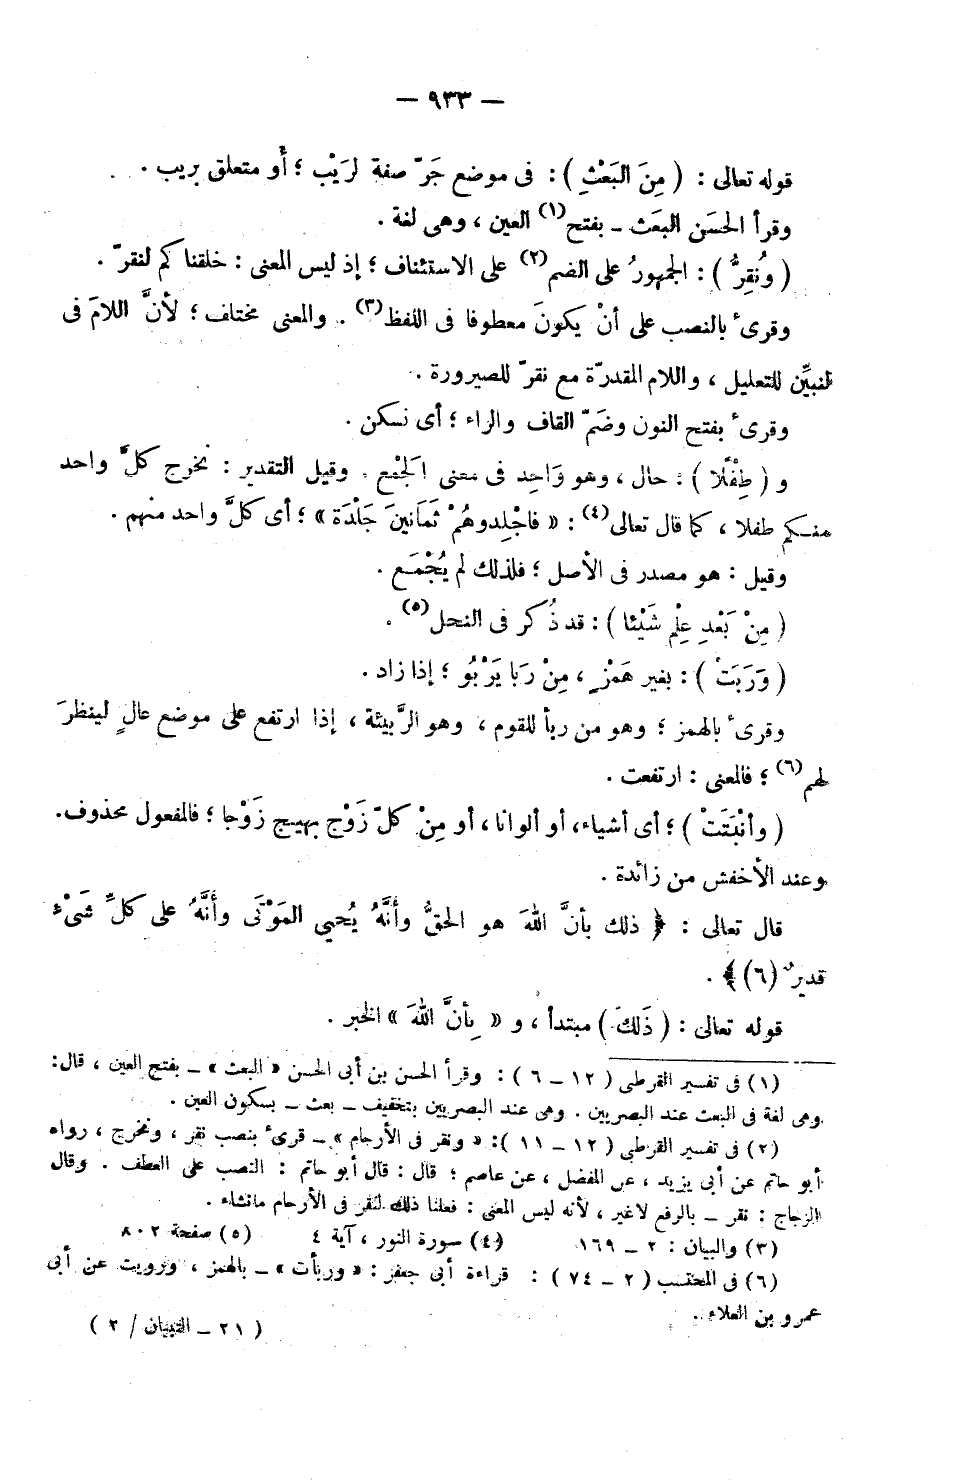 — ٩٣٣ —
قوله تعالى : ( مِنَ البَعْثِ ) : فى موضع جَرّ صفة لرَيْب ؛ أو متعلق بريب .
وقرأ الحسَن البعَث ــ بفتح(١) العين ، وهى لغة .
( ونُقِرُّ ) : الجمهورُ على الضم(٢) على الاستئناف ؛ إذ ليس المعنى : خلقناكم لنقرّ .
وقرىء بالنصب على أنْ يكونَ معطوفا فى اللفظ(٣) . والمعنى مختلف ؛ لأنَّ اللامَ فى
لنبيِّن للتعليل ، واللام المقدرّة مع نقرّ للصيرورة .
وقرىء بفتح النون وضَمّ القاف والراء ؛ أى نسكن .
و ( طِفْلًا ) : حال ، وهو وَاحِد فى معنى الجَمْع . وقيل التقدير : نخرج كلَّ واحد
منــكم طفلا ، كما قال تعالى(٤) : « فاجْلِدوهُمْ ثَمَانينَ جَلْدَة » ؛ أى كلَّ واحد منهم .
وقيل : هو مصدر فى الأصل ؛ فلذلك لم يُجْمَع .
( مِنْ بَعْدِ عِلْمٍ شَيْئا ) : قد ذُكر فى النحل(٥) .
( وَرَبَتْ ) : بغير هَمْزٍ ، مِنْ رَبا يَرْبُو ؛ إذا زاد .
وقرىء بالهمز ؛ وهو من ربأ للقوم ، وهو الرَّبيئة ، إذا ارتفع على موضع عالٍ لينظرَ
لهم(٦) ؛ فالمعنى : ارتفعت .
( وأنْبَتَتْ ) ؛ أى أشياء، أو ألوانا ، أو مِنْ كلّ زَوْج بهيج زَوْجا ؛ فالمفعول محذوف.
وعند الأخفش من زائدة .
قال تعالى : ﴿ ذلك بأنَّ اللهَ هو الحقُّ وأنَّهُ يُحيي المَوْتَى وأنَّهُ على كلِّ شَىْء
قدير (٦) ﴾ .
قوله تعالى : ( ذَلكَ ) مبتدأ ، و « بِأنَّ اللهَ » الخبر .
(١) فى تفسير القرطبى ( ١٢ ــ ٦ ) : وقرأ الحسن بن أبى الحسن « البعث » ــ بفتح العين ، قال:
وهى لغة فى البعث عند البصريين . وهى عند البصريين بتخفيف ــ بعث ــ بسكون العين .
(٢) فى تفسير القرطبى ( ١٢ ــ ١١ ) : « ونقر فى الأرحام » ــ قرىء بنصب نقر ، ونخرج ، رواه
أبو حاتم عن أبى يزيد ، عن المفضل ، عن عاصم ؛ قال : قال أبو حاتم : النصب على العطف . وقال
الزجاج : نقر ــ بالرفع لا غير ، لأنه ليس المعنى : فعلنا ذلك لنقر فى الأرحام ما نشاء .
(٣) والبيان : ٢ ــ ١٦٩ (٤) سورة النور ، آية ٤ (٥) صفحة ٨٠٢
(٦) فى المحتسب ( ٢ ــ ٧٤ ) : قراءة أبى جعفر : « وربأت » ــ بالهمز ، ورويت عن أبى
عمرو بن العلاء .
( ٢١ ــ التبيان / ٢ )